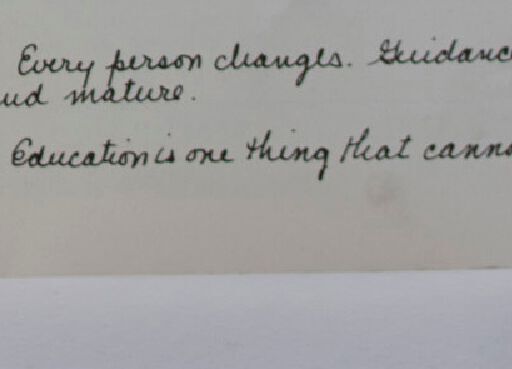 Every person changes. Guidance
and mature.
Education is one thing that canno